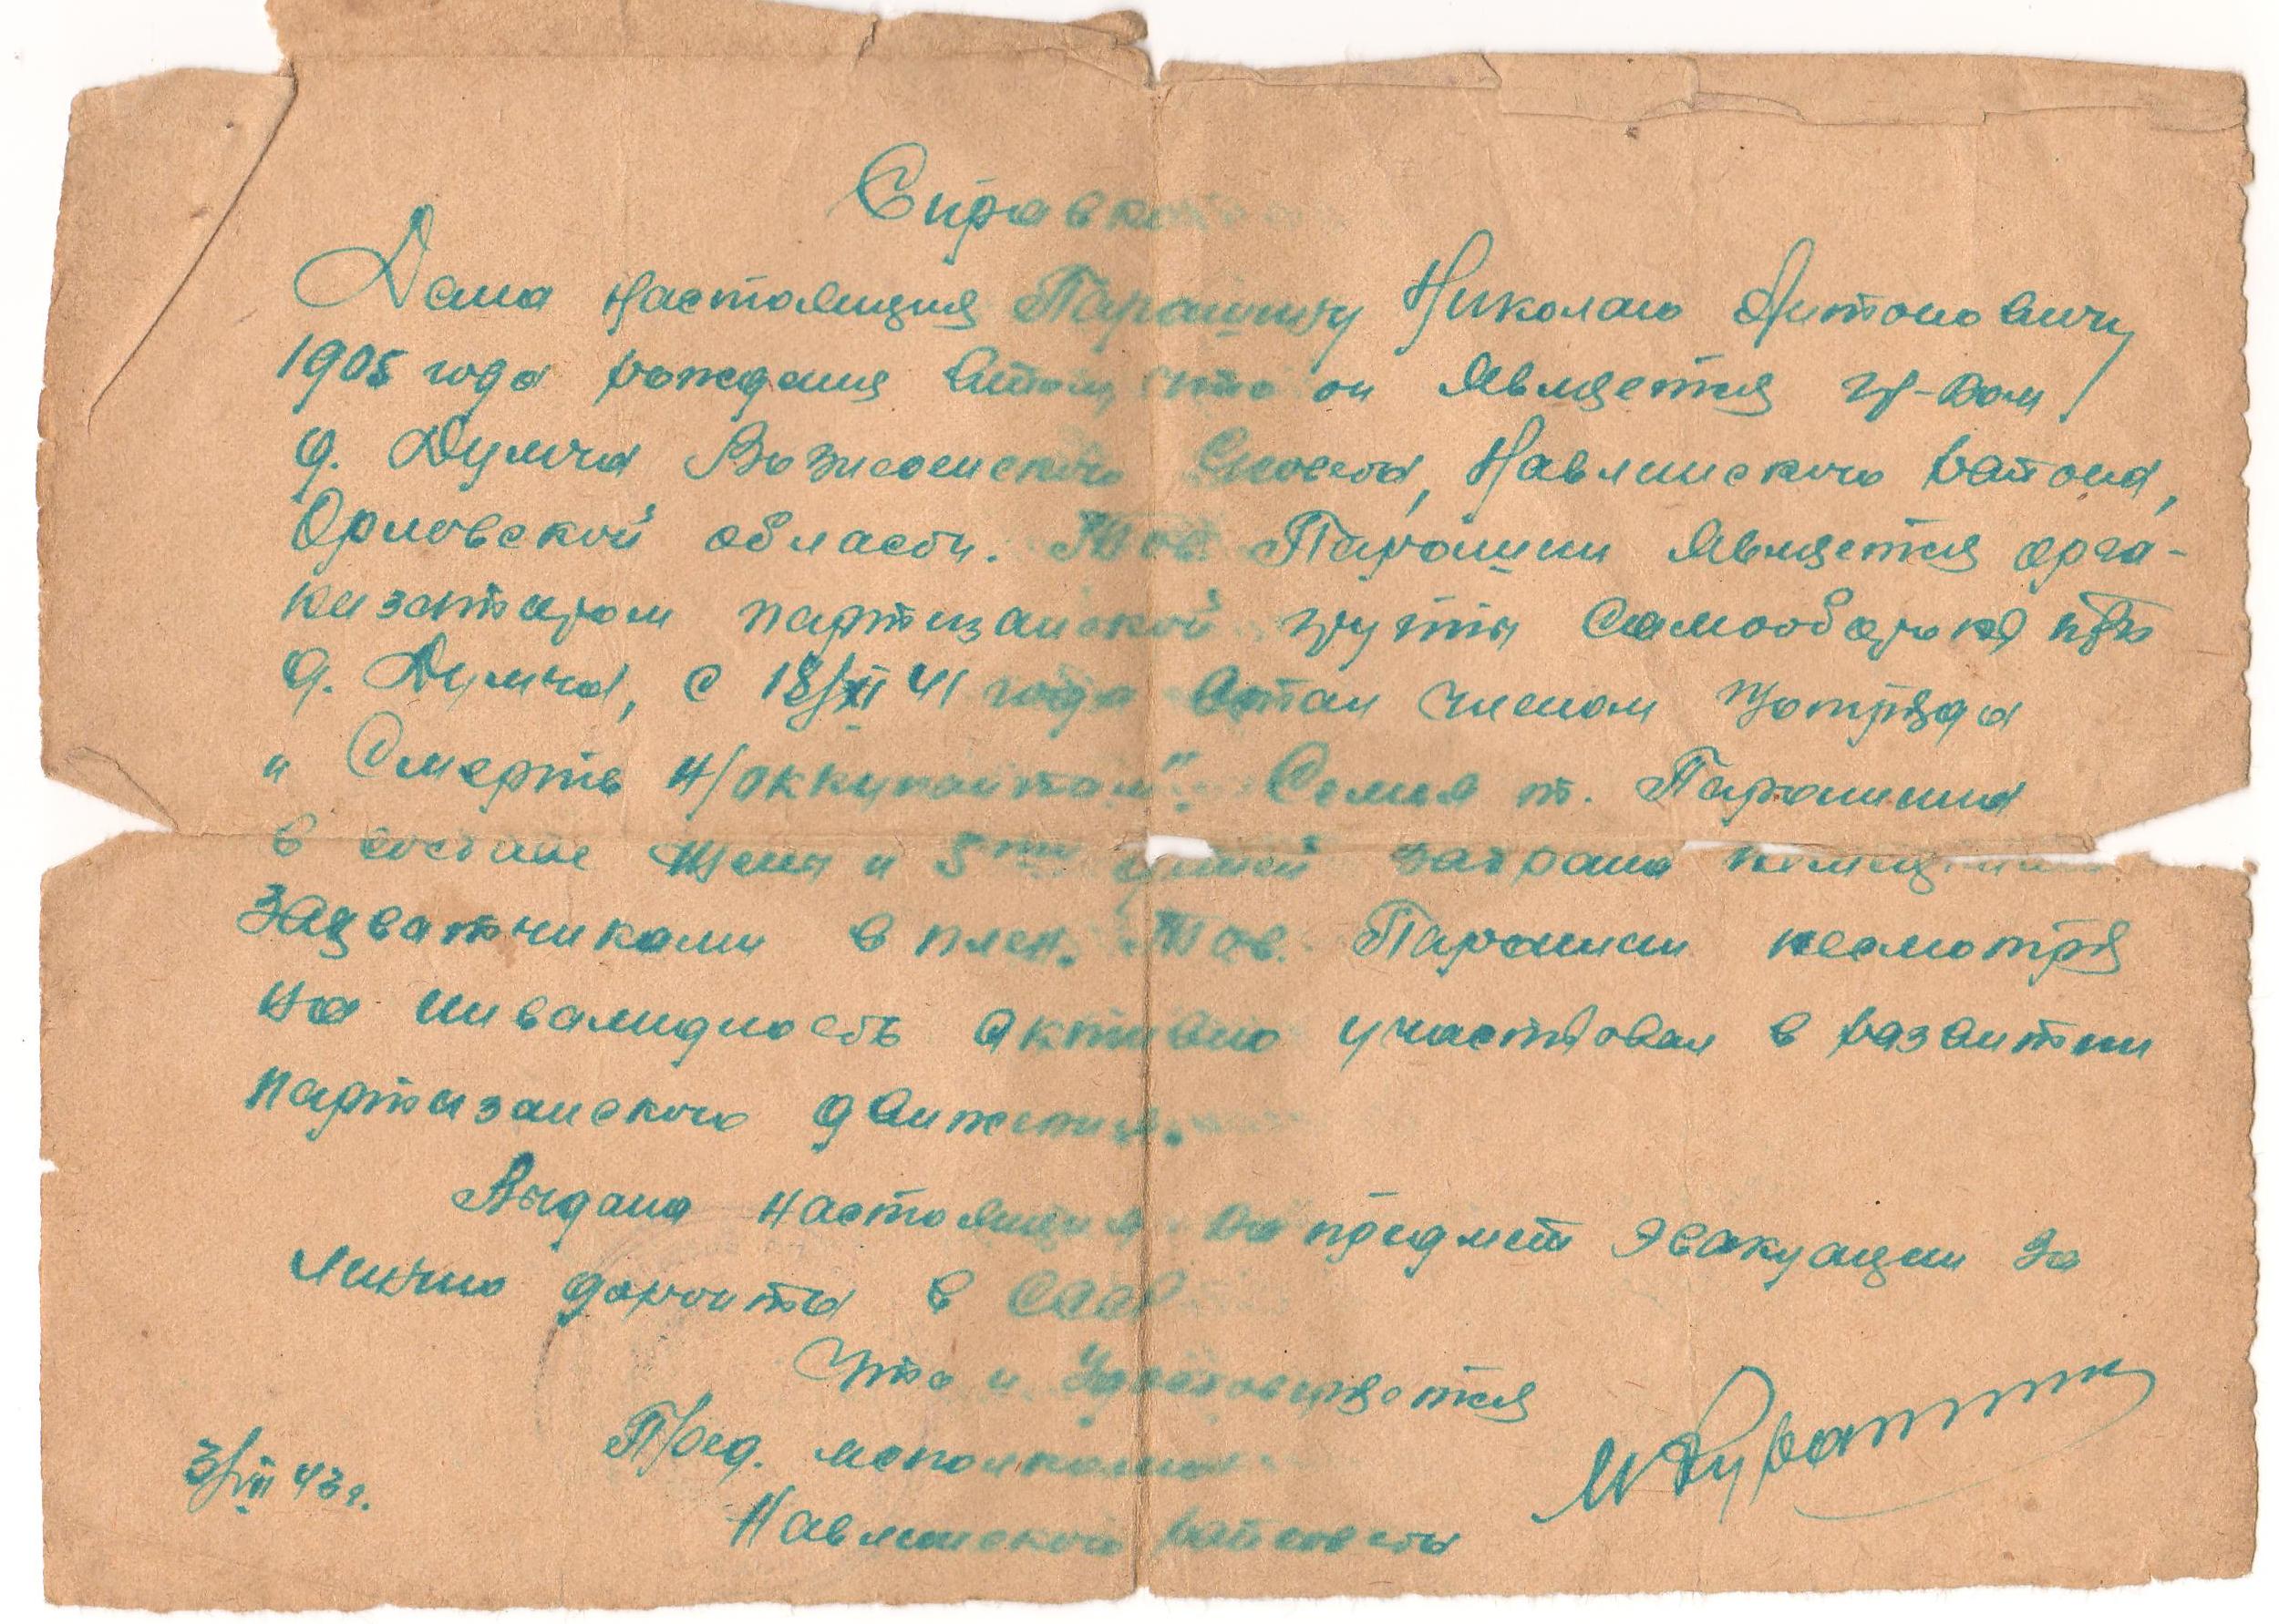 Справка
Дана настоящия Парошину Николаю Антоновичу
1905 года рождения втом, что он является гр-ном
д. Думча Вознесенского с/совета, Навлинского района,
Орловской области. Тов. Парошин является орга-
низатором партизанской группы самообороны
д. Думча, с 18/XII 41 года встал членом п/отряда
"Смерть н/оккупантам". Семья т. Парошина
в составе жены и 5ти детей забрана немецкими
захватчиками в плен. Тов. Парошин несмотря
на инвалидность активно участвовал в развитии
партизанского движения.
Выдана настоящия на предмет эвакуации за
линию фронта в
Что и удостоверяется
Пред. исполкома
Навлинского райсовета
3/VII 43 г.